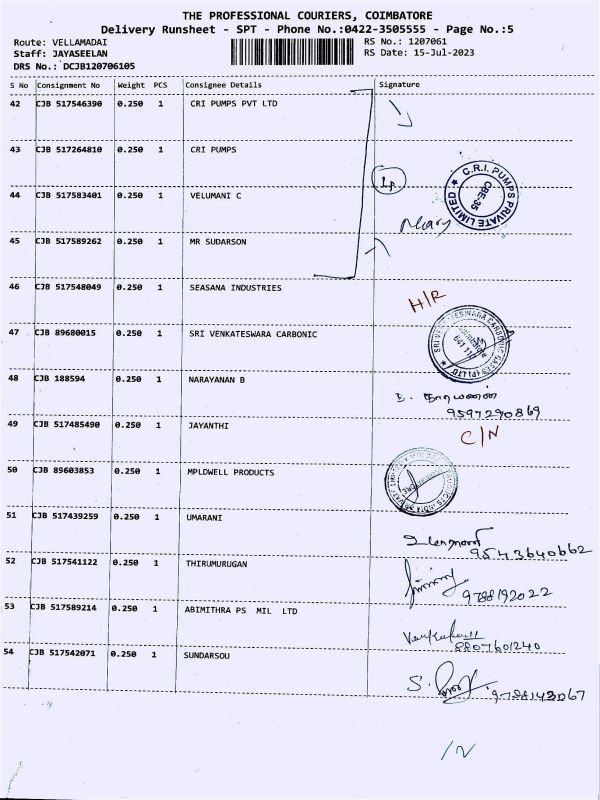 THE PROFESSIONAL COURIERS, COIMBATORE
Delivery Runsheet - SPT - Phone No.:0422-3505555 - Page No.:5
Route: VELLAMADAI RS No.: 1207061
Staff: JAYASEELAN RS Date: 15-Jul-2023
DRS No.: DCJB120706105
S No Consignment No Weight PCS Consignee Details Signature
42 CJB 517546390 0.250 1 CRI PUMPS PVT LTD
43 CJB 517264810 0.250 1 CRI PUMPS
C.R.I. PUMPS PRIVATE LIMITED
CBE-35
44 CJB 517583401 0.250 1 VELUMANI C
45 CJB 517589262 0.250 1 MR SUDARSON
46 CJB 517548049 0.250 1 SEASANA INDUSTRIES
H/R
47 CJB 89680015 0.250 1 SRI VENKATESWARA CARBONIC
SRI VENKATESWARA CARBONIC GASES (P) LTD
48 CJB 188594 0.250 1 NARAYANAN B
நாராயணன்
9597290869
49 CJB 517485490 0.250 1 JAYANTHI
C/N
50 CJB 89603853 0.250 1 MPLDWELL PRODUCTS
51 CJB 517439259 0.250 1 UMARANI
9543640662
52 CJB 517541122 0.250 1 THIRUMURUGAN
9788192022
53 CJB 517589214 0.250 1 ABIMITHRA PS MIL LTD
8807601240
54 CJB 517542071 0.250 1 SUNDARSOU